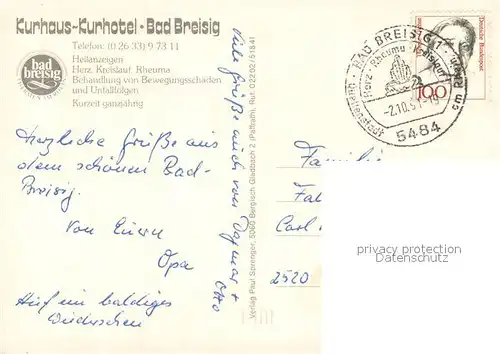 Kurhaus-Kurhotel • Bad Breisig
Telefon: (0 26 33) 9 73 11
Heilanzeigen
Herz, Kreislauf, Rheuma
Behandlung von Bewegungsschäden
und Unfallfolgen
Kurzeit ganzjährig
bad
breisig
Herzliche Grüße aus
dem schönen Bad-
Breisig.
Von Euerm
Opa
Auf ein baldiges
Wiedersehen
Viele Grüße auch von Dagmar +
Otto
Verlag Paul Sprenger, 5060 Bergisch Gladbach 2 (Paffrath), Ruf 02202/51841
BAD BREISIG 1
Herz - Rheuma - Kreislauf
-2.10.
5484
Quellenstadt
am Rhein
Deutsche Bundespost
100
Familie
Fa
Carl
2520
privacy protection
Datenschutz